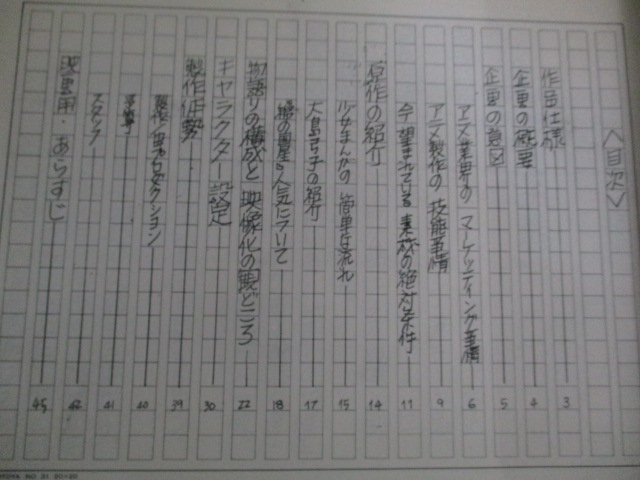 〈目次〉
作品仕様 3
企画の概要 4
企画の意図 5
アニメ業界のマーケッティング事情 6
アニメ製作の技能事情 9
今望まれている素材の絶対条件 11
原作の紹介 14
少女まんがの簡単な流れ 15
大島弓子の紹介 17
綿の国星の人気について 18
物語りの構成と映像化の観どころ 22
キャラクター設定 30
製作体勢 39
製作プロダクション 40
予算 41
スタッフ 42
・あらすじ 45